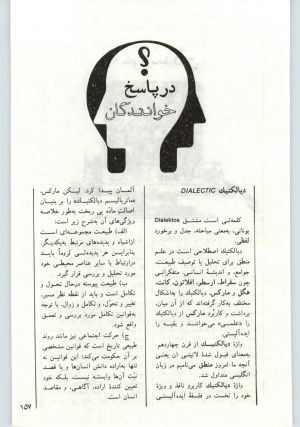 ؟
در پاسخ
خوانندگان
دیالکتیك DIALECTIC
کلمه‌ئی است مشتق Dialektos
یونانی، به‌معنی مباحثه، جدل و برخورد
لفظی
دیالکتیك اصطلاحی است در علم
منطق برای تحلیل یا توصیف طبیعت،
جوامع، و اندیشهٔ انسانی. متفکرانی
چون سقراط، ارسطو، افلاتون، کانت،
هگل و مارکس، دیالکتیك را به‌اشکال
مختلف به‌کار گرفته‌اند که از آن میان،
برداشت و کاربرد مارکس از دیالکتیك
را «علمی» می‌خوانند و بقیه را
ایده‌آلیستی.
واژهٔ دیالکتیك از قرن چهاردهم
به‌معنای قبول شدهٔ لاتینی آن یعنی
آنچه ما امروز منطق می‌نامیم در زبان
انگلیسی متداول شد.
واژهٔ دیالکتیك کاربرد نافذ و ویژهٔ
خود را نخست در فلسفهٔ ایده‌آلیستی
آلمان پیدا کرد. لیکن مارکس،
«ماتریالیسم دیالکتیك» را بر بنیان
اصالت مادّه پی ریخت به‌طور خلاصه
ویژگی‌های آن به‌شرح زیر است:
الف) طبیعت مجموعه‌ای است
از اشیاء و پدیده‌های مرتبط به‌یکدیگر.
بنابراین هر پدیده‌ئی لزوماً باید
در ارتباط با سایر عناصر محیطی خود
مورد تحلیل و بررسی قرار گیرد.
ب) طبیعت پیوسته درحال تحول و
تکامل است و باید از نقطه نظر مسیر،
تغییر و تحول، و تکامل، و زوال، یا توجه
به‌قانون تکامل مورد بررسی و تعمق
واقع شود.
ج) حرکت اجتماعی نیز مانند روند
طبیعی تاریخ است که قوانین مشخصی
بر آن حکومت می‌کند؛ این قوانین نه
تنها به‌اراده دانش انسان‌ها و یا قصد
نیّت آن‌ها وابسته نیست، بلکه خود
تعیین کنندهٔ اراده، آگاهی، و مقاصد
انسان است.
۱۵۷